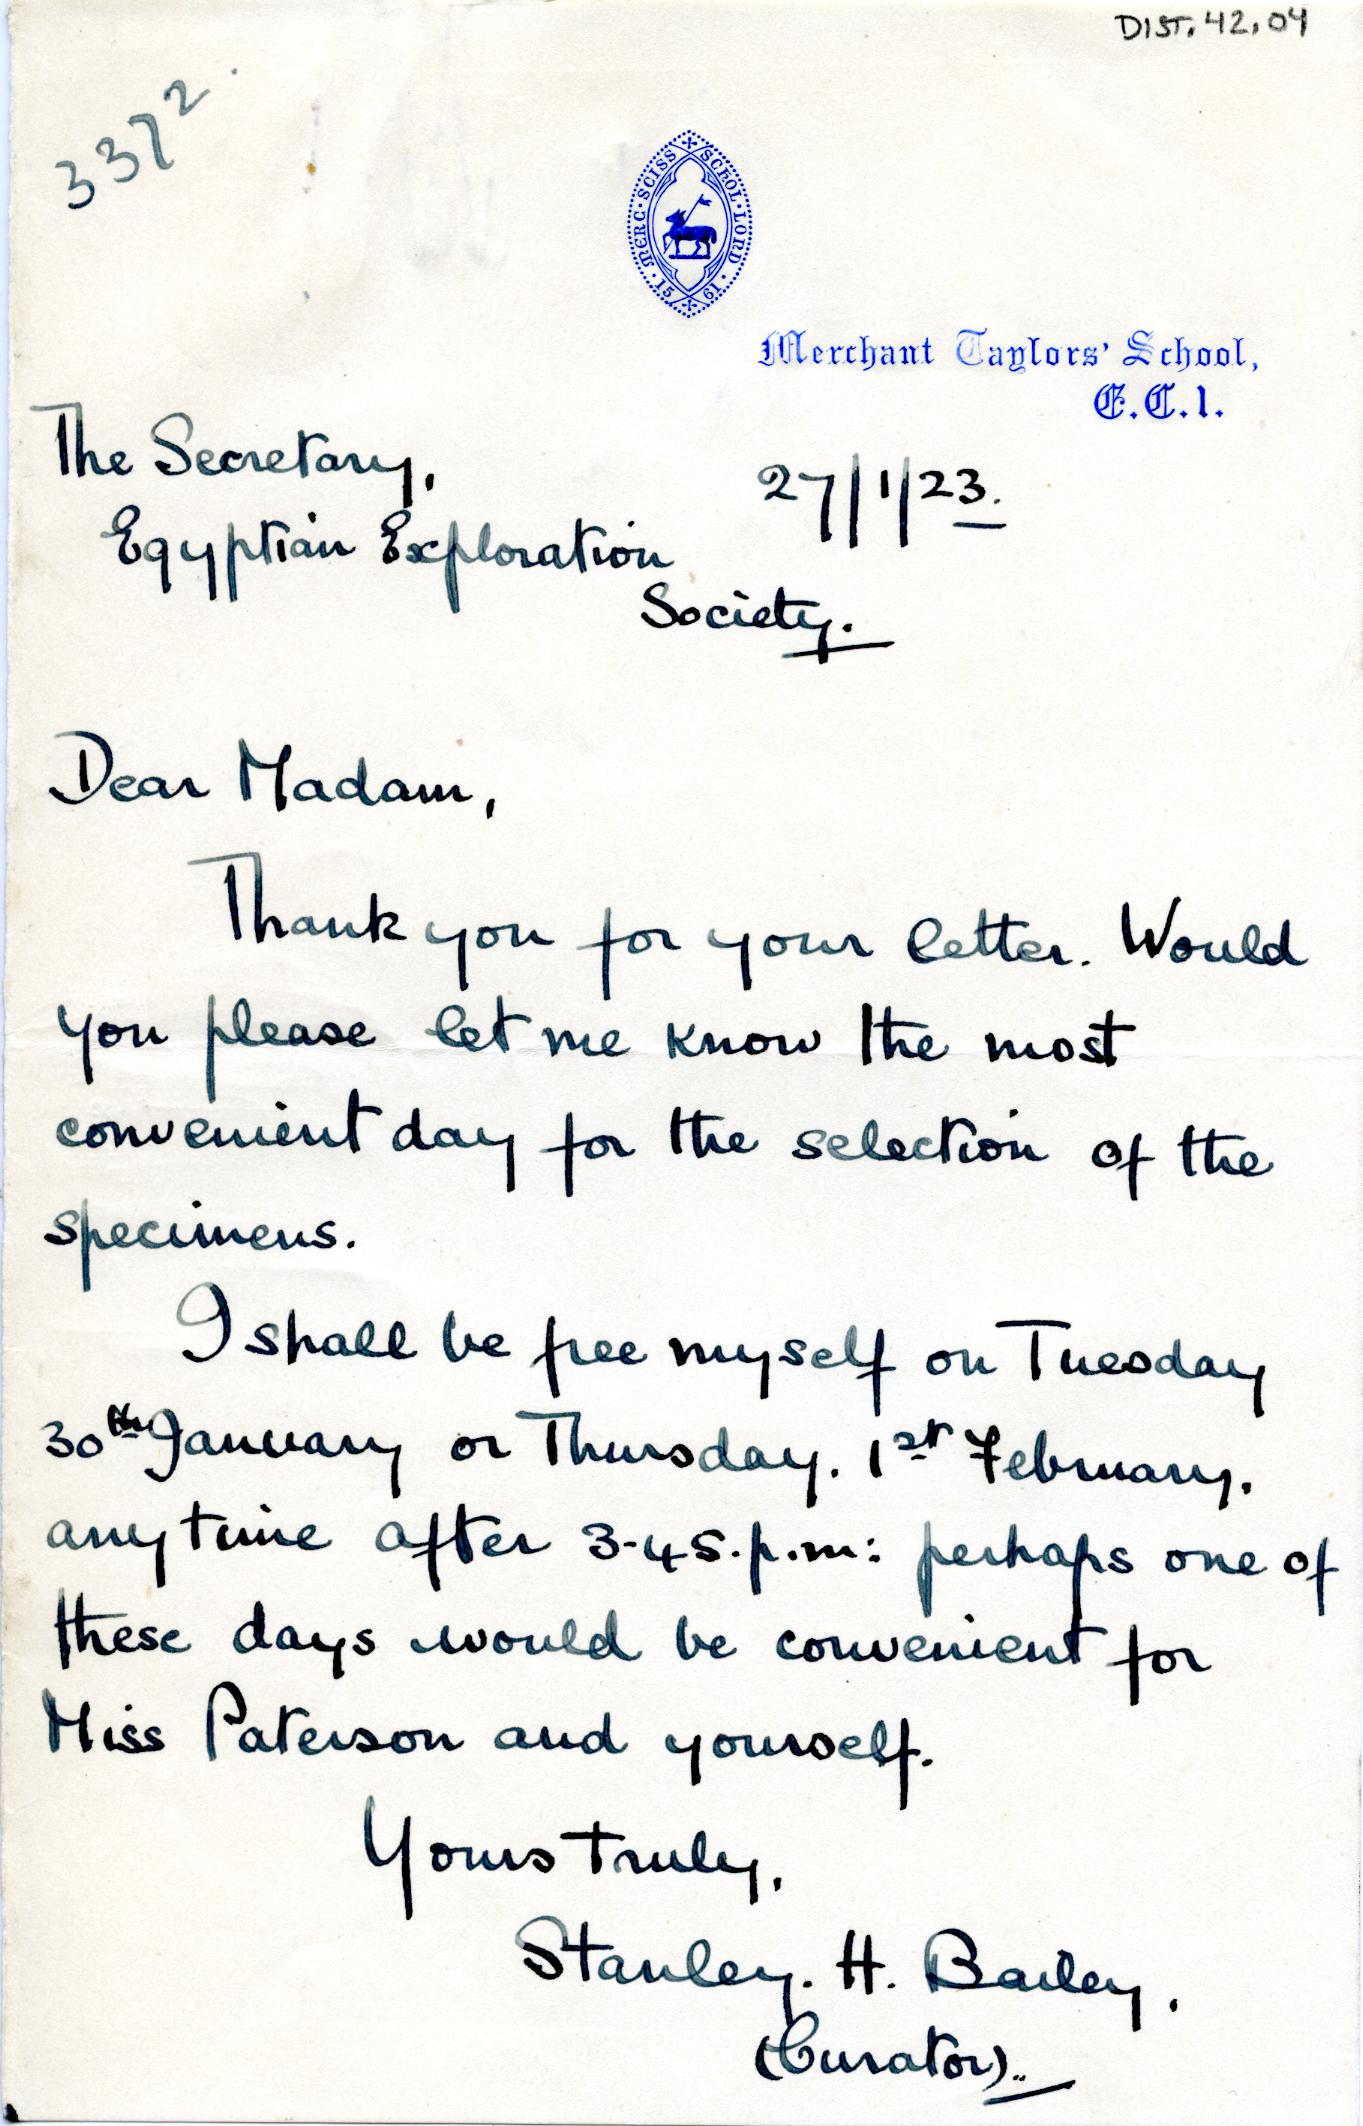 DIST. 42.04
3372.
MERC · SCISS · SCHOL · LOND · 1561
Merchant Taylors' School,
E.C.1.
The Secretary,
27/1/23.
Egyptian Exploration
Society.
Dear Madam,
Thank you for your letter. Would
you please let me know the most
convenient day for the selection of the
specimens.
I shall be free myself on Tuesday
30th January or Thursday. 1st February.
any time after 3-45.p.m: perhaps one of
these days would be convenient for
Miss Paterson and yourself.
Yours truly,
Stanley. H. Bailey,
(Curator)..